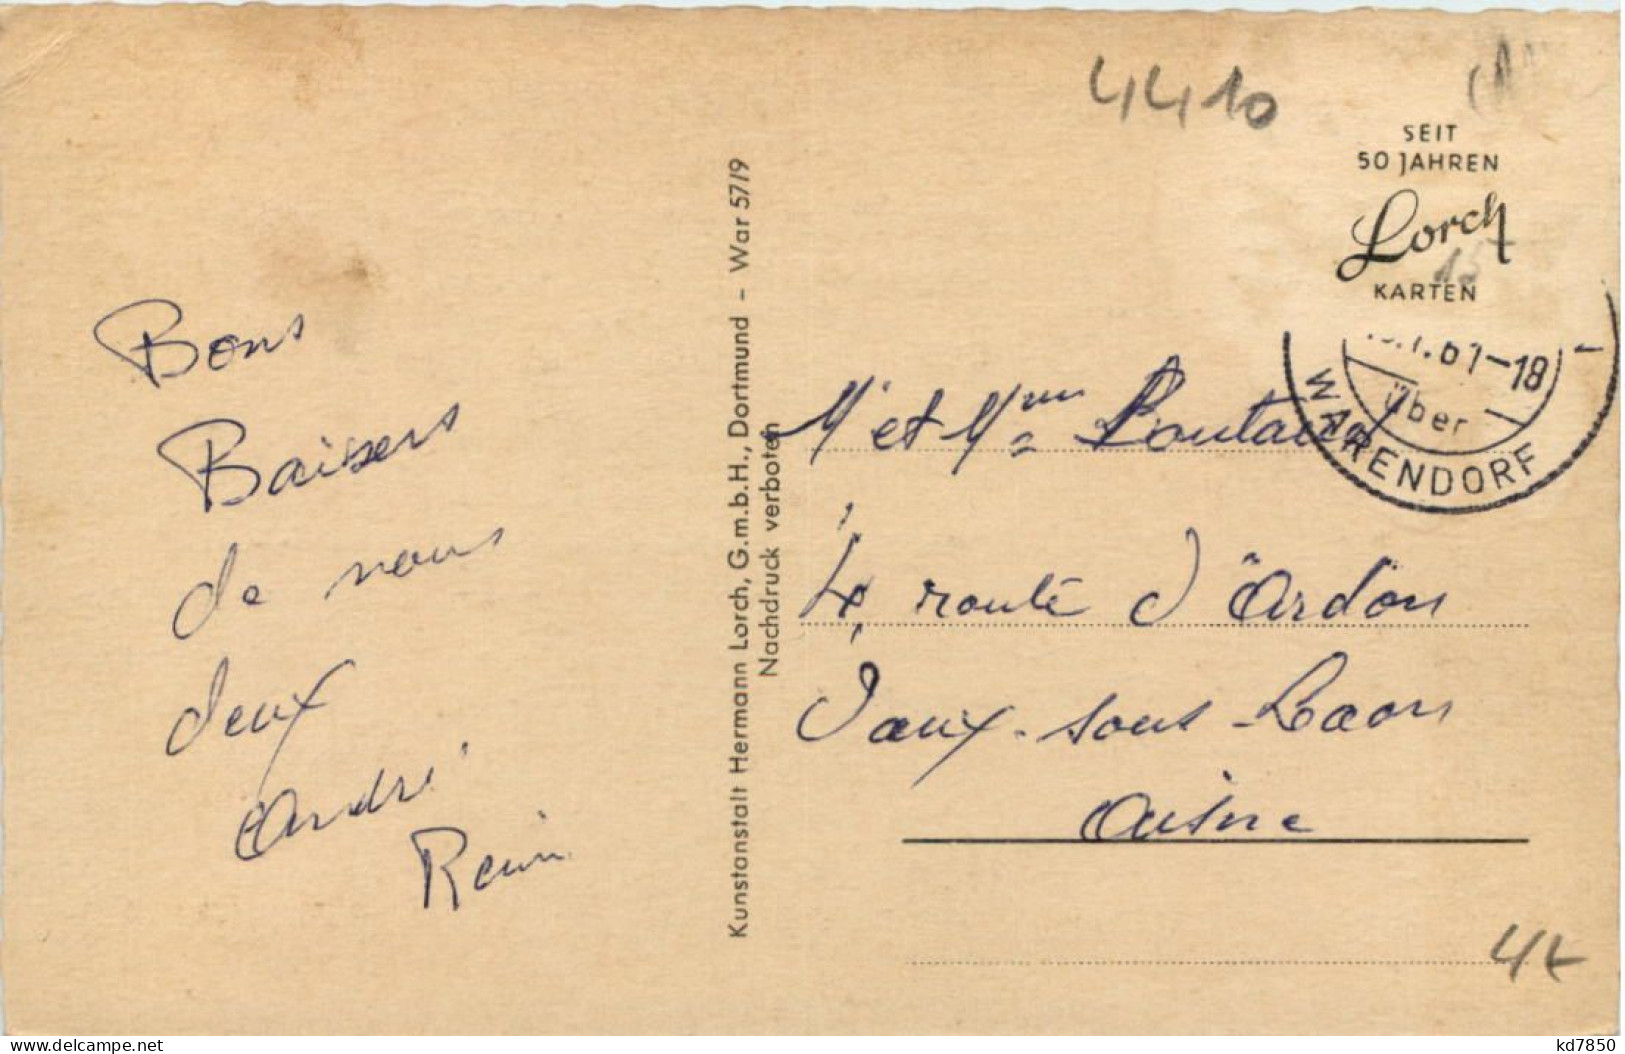 4410
SEIT
50 JAHREN
Lorch
KARTEN
61-18
über
WARENDORF
Bons
Baisers
de nous
deux
André
Kunstanstalt Hermann Lorch, G.m.b.H., Dortmund - War 57/9
Nachdruck verboten
Mr et Mme
4, route d'Ardon
Vaux-sous-Laon
Aisne
4t
delcampe.net
kd7850